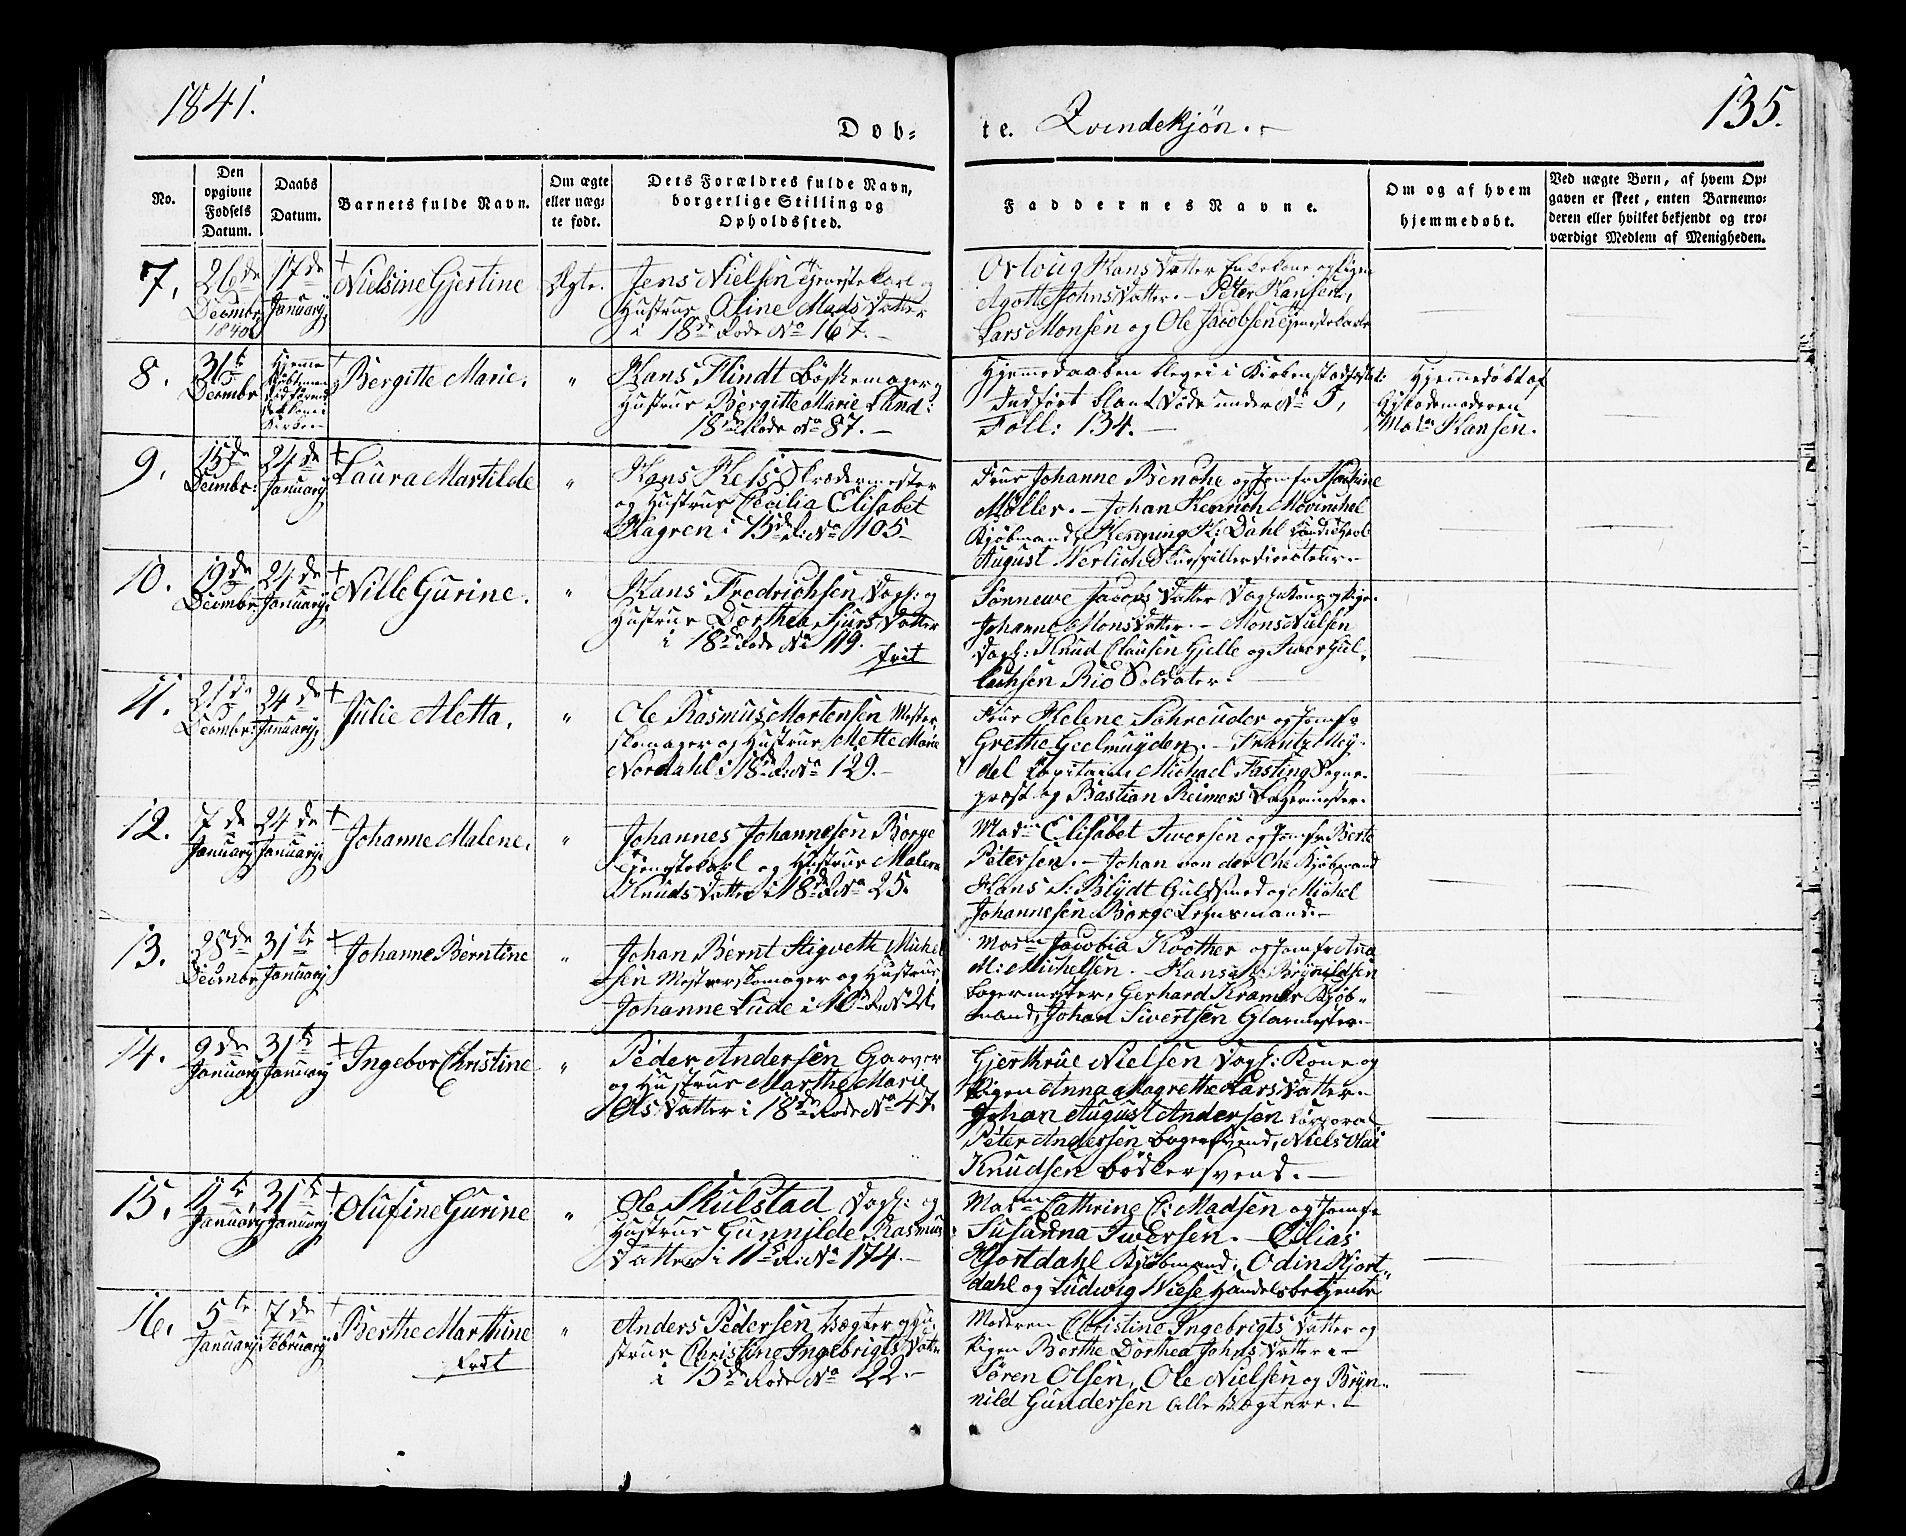 1841.
135.
Døb-
te. Qvindekjøn.
No.
Den opgivne Fødsels Datum.
Daabs Datum.
Barnets fulde Navn.
Om ægte eller uæg-te født.
Dets Forældres fulde Navn, borgerlige Stilling og Opholdssted.
Faddernes Navne.
Om og af hvem hjemmedøbt.
Ved uægte Børn, af hvem Op-gaven er skeet, enten Barnemo-deren eller hvilket bekjendt og tro-værdigt Medlem af Menigheden.
7.
26de Decembr 1840
17de Januarij
Nielsine Gjertine
Ægte.
Jens Nielsen Tjenestekarl og
Hustrue Oline Mads Datter
i 18de Rode No 167.
Hans Datter Enkekone og Pigen
Agotte Johns Datter. Peter Hansen,
Lars Monsen og Ole Jacobsen Tjenestekarle
8.
31te Decembr
Bergitte Marie.
"
Hans Flindt Bøssemager og
Hustrue Bergitte Marie Lund:
18de Rode No 87.
Hjemmedaaben
Indført blant Døde under No 5,
Foll: 134.
Hjemmedøbt af
Gjordemoderen
Mad. Hansen.
9.
15de Decembr:
24de Januarij
Laura Martilde
"
Hans Hess Skrædermester
og Hustrue Cecilia Elisabet
Hagren i 15de R: No 105
Frue Johanne Benche og Jomfr
Møller. Johan Henrich Mowinchel
Kjøbmand, Henning H: Dahl
August Nerlich Skuespiller Directeur.
10.
19de Decembr
24de Januarij
Nille Gurine.
"
Hans Fredrichsen Dagl: og
Hustrue Dorthea Sjurs Datter
i 18de Rode No 119.
frit
Sønnewe Jacobs Datter og Pige
Johanne Mons Datter. Mons Nielsen
Dagl: Knud Clausen Gjelle og Iver Gul-
lachsen Rio Soldater.
11.
21de Decembr:
24de Januarij
Julie Aletta.
"
Ole Rasmus Mortensen Mester
skomager og Hustrue Mette Marie
Nordahl i 18de R: No 129.
Frue Helene Schreuder og Jomfr
Grethe Geelmuyden. Frantz Mey-
del Capitain, Michael Fasting Sogne-
præst og Bastian Reimers Bagermester.
12.
7de Januarij
24de Januarij
Johanne Malene.
"
Johannes Johannesen Borge
Tjenestekarl og Hustrue Malene
Knuds Datter i 18de R. No 25.
Madm Elisabet Iwersen og Jomfr Berte
Petersen. Johan von der Ohe Kjøbmand
Hans S: Blydt Guldsmed og Mickel
Johannesen Borge Lensmand.
13.
28de Decembr
31te Januarij
Johanne Berntine
"
Johan Bernt Stigveth Michel
sen Mesterskomager og Hustrue
Johanne Lude i 10de R. No 21.
Madm Jacobia Koother og Jomfr Ana
M: Michelsen. Hans Brynildsen
Bagermester, Gerhard Kramer Kjøb-
mand, Johan Sivertsen Glarmester.
14.
9de Januarij
31te Januarij
Ingebor Christine
"
Peder Andersen Garver
og Hustrue Marthe Marie
Ols Datter i 18de Rode No 47.
Gjerthrue Nielsen Dagl: Kone og
Pigen Anna Magrethe Lars Datter.
Johan August Andersen Corporal
Peter Andersen Bagersvend, Niels Olai
Knudsen Bødkersvend.
15.
11te Januarij
31te Januarij
Olufine Gurine
"
Ole Skulstad Dagl: og
Hustrue Gunnilde Rasmus
Datter i 11te R: No 174.
Madm Cathrine C: Madsen og Jomfr
Susanna Iwersen. Elias
Hjortdahl Kjøbmand, Odin Hjort-
dahl og Ludwig Wiese Handelsbetjente
16.
5te Januarij
7de Februarij
Berthe Marthine
"
Anders Pedersen Vægter og Hu-
strue Christine Ingebrigts Datter
i 15de Rode No 22.
Moderen Christine Ingebrigts Datter og
Pigen Berthe Dorthea Johns Datter.
Søren Olsen, Ole Nielsen og Bryn-
nild Gundersen alle Vægtere.